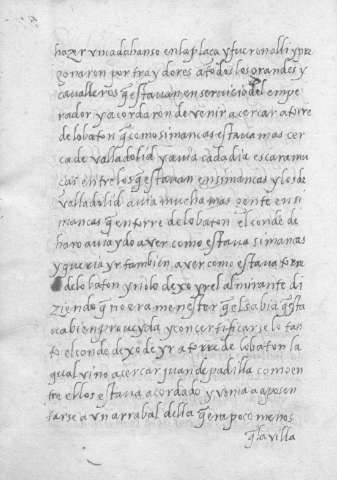 hazer vn cadahanso en la plaça y fueron alli y pre
gonaron por traydores a todos los grandes y
caualleros q̃ estauan en seruicio del empe
rador y acordaron de venir a cercar a torre
de lobaton q̃ como simancas estaua mas cer
ca de valladolid y auia cada dia escaramu
ças entre los q̃ estauan en simancas y los de
valladolid auia mucha mas gente en si
mancas q̃ en torre de lobaton el conde de
haro auia ydo a ver como estaua simancas
y queria yr tambien a ver como estaua torre
de lobaton y no lo dexo yr el almirante di
ziendo q̃ no era menester q̃ el sabia q̃ esta
ua bien proueyda y con certificarselo tan
to el conde dexo de yr a torre de lobaton la
qual vino a cercar juan de padilla como en
tre ellos estaua acordado y venia a aposen
tarse a vn arrabal della q̃ era poco menos
q̃ la villa